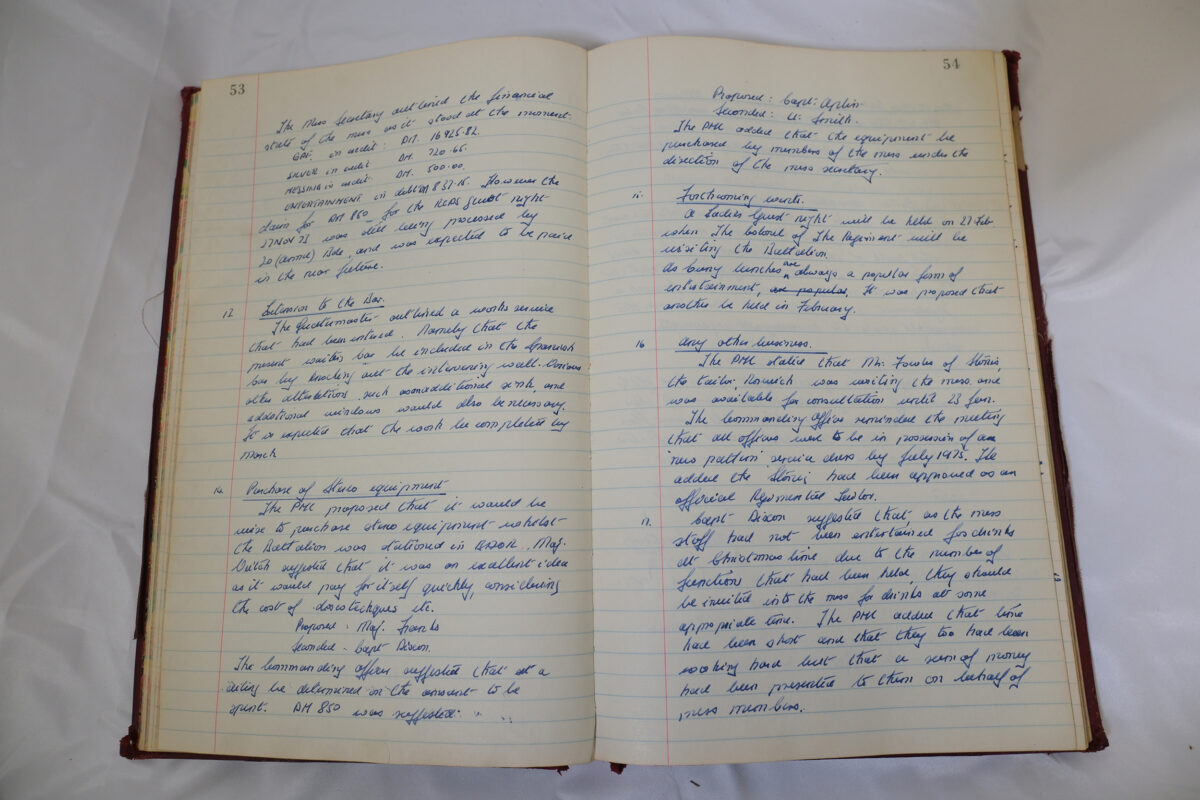 53
The Mess Secretary outlined the financial
state of the mess as it stood at the moment
GPF. in credit: DM. 16925.82.
SILVER in credit DM. 720.65.
MESSING in credit. DM. 500.00.
ENTERTAINMENT in debit DM 837.15. However the
claim for DM 850 for the Guest night
17 NOV 73 was still being processed by
20 (armd) Bde, and was expected to be paid
in the near future.
Extension to the Bar.
The Quartermaster outlined a works service
that had been entered. Namely that the
present waiters bar be included in the
bar by knocking out the intervening wall. Various
other alterations, such as an additional sink, and
additional windows would also be necessary.
It is expected that the work be completed by
March
14. Purchase of Stereo equipment
The PMC proposed that it would be
wise to purchase stereo equipment whilst
the Battalion was stationed in BAOR. Maj.
Veitch suggested that it was an excellent idea
as it would pay for itself quickly, considering
the cost of discotheques etc.
Proposed: Maj. Franks
Seconded - Capt Dixon.
The Commanding officer suggested that a
ceiling be determined on the amount to be
spent. DM 850 was suggested.
54
Proposed: Capt:
Seconded: Lt. Smith.
The PMC added that the equipment be
purchased by members of the mess under the
direction of the mess secretary.
15. Forthcoming events.
A Ladies Guest night will be held on Feb.
when The Colonel of The Regiment will be
visiting the Battalion.
As curry lunches are always a popular form of
entertainment, are popular. It was proposed that
another be held in February.
16 Any other business.
The PMC stated that Mr. Fowler of Stones,
the tailor, Norwich was visiting the mess and
was available for consultation until 23 Jan.
The Commanding Officer reminded the meeting
that all officers were to be in possession of an
'new pattern' service dress by July 1975. He
added the Stones had been approved as an
official Regimental Tailor.
17. Capt Dixon suggested that, as the mess
staff had not been entertained for drinks
at Christmas time due to the number of
functions that had been held, they should
be invited into the mess for drinks at some
appropriate time. The PMC added that time
had been short and that they too had been
working hard but that a sum of money
had been presented to them on behalf of
mess members.